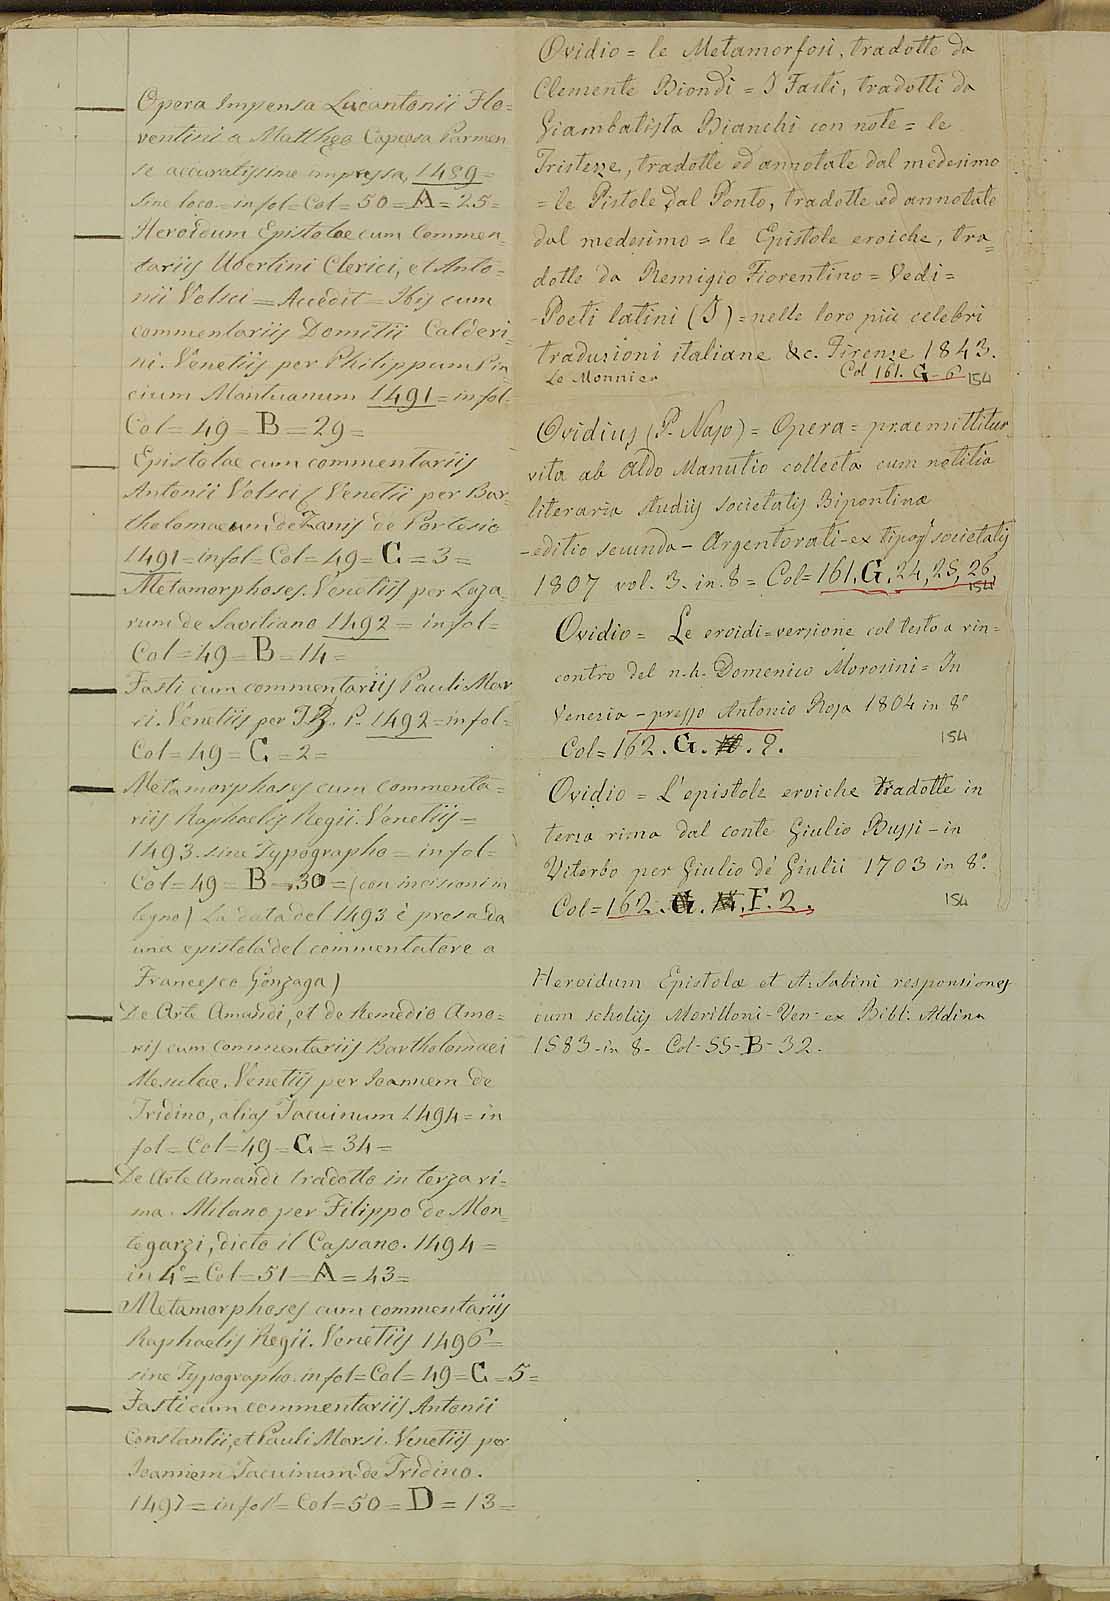 Opera Impensa Lucantonii Flo=
rentini a Mattheo Capcasa Parmen
se accuratissime impressa, 1489=
sine loco = in fol = Col = 50 = A = 25 =
Heroidum Epistolae cum Commen=
tariis Ubertini Clerici, et Anto=
nii Volsci = Accedit = Ibis cum
commentariis Domitii Calderi=
ni. Venetiis per Philippum Pin=
cium Mantuanum 1491 = in fol=
Col = 49 = B = 29 =
Epistolae cum commentariis
Antonii Volsci (Venetii per Bar=
tholomaeum de Zanis de Portesio
1491 = in fol = Col = 49 = C = 3 =
Metamorphoses. Venetiis per Laza=
rum de Saviliano 1492 = in fol =
Col = 49 = B = 14 =
Fasti cum commentariis Pauli Mar
si. Venetiis per J.B. P. 1492 = in fol =
Col = 49 = C = 2 =
Metamorphoses cum commenta=
riis Raphaelis Regii. Venetiis =
1493. sine Typographo = in fol =
Col = 49 = B = 30 = (con incisioni in
legno) La data del 1493 è presa da
una epistola del commentatore a
Francesco Gonzaga)
De Arte Amandi, et de Remedio Amo=
ris cum commentariis Bartholomaei
Merulae. Venetiis per Joannem de
Tridino, alias Tacuinum 1494 = in
fol = Col = 49 = C = 34 =
De Arte Amandi tradotto in terza ri=
ma. Milano per Filippo de Mon=
tegazzi, dicto il Cassano. 1494 =
in 4° = Col = 51 = A = 43 =
Metamorphoses cum commentariis
Raphaelis Regii. Venetiis 1496 =
sine Typographo. in fol = Col = 49 = C = 5 =
Fasti cum commentariis Antonii
Constantii, et Pauli Marsi. Venetiis per
Joannem Tacuinum de Tridino.
1497 = in fol = Col = 50 = D = 13 =
Ovidio = le Metamorfosi, tradotte da
Clemente Biondi = I Fasti, tradotti da
Giambatista Bianchi con note = le
Tristezze, tradotte ed annotate dal medesimo
= le Pistole dal Ponto, tradotte ed annotate
dal medesimo = le Epistole eroiche, tra=
dotte da Remigio Fiorentino = Vedi =
-Poeti latini (I) = nelle loro più celebri
traduzioni italiane &c. Firenze 1843.
Le Monnier Col 161. G - 6 154
Ovidius (P. Naso) = Opera = praemittitur
vita ab Aldo Manutio collecta cum notitia
literaria studiis societatis Bipontinæ
- editio secunda - Argentorati - ex tipog. societatis
1807 vol. 3. in. 8 = Col = 161. G. 24, 25, 26
154
Ovidio = Le eroidi = versione col testo a rin=
contro del n.h. Domenico Morosini = In
Venezia - presso Antonio Rosa 1804 in 8°
Col = 162. G. 2. 154
Ovidio = L'epistole eroiche tradotte in
terza rima dal conte Giulio Bussi - in
Viterbo per Giulio de' Giulii 1703 in 8°.
Col = 162. F. 2. 154
Heroidum Epistolæ et A. Sabini responsiones
cum scholiis Morilloni - Ven - ex Bibl. Aldina
1583 - in 8 - Col - 55 - B - 32.